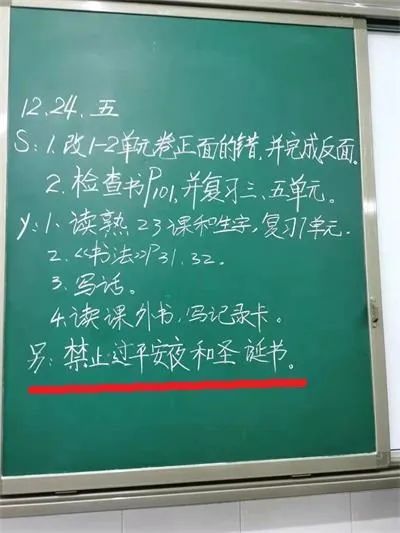 12.24.五
S:1.改1-2单元卷正面的错,并完成反面。
2.检查书P101,并复习三、五单元。
y:1.读熟23课和生字,复习1单元.
2.《书法》P31.32。
3.写话。
4.读课外书,写记录卡。
另:禁止过平安夜和圣诞书。